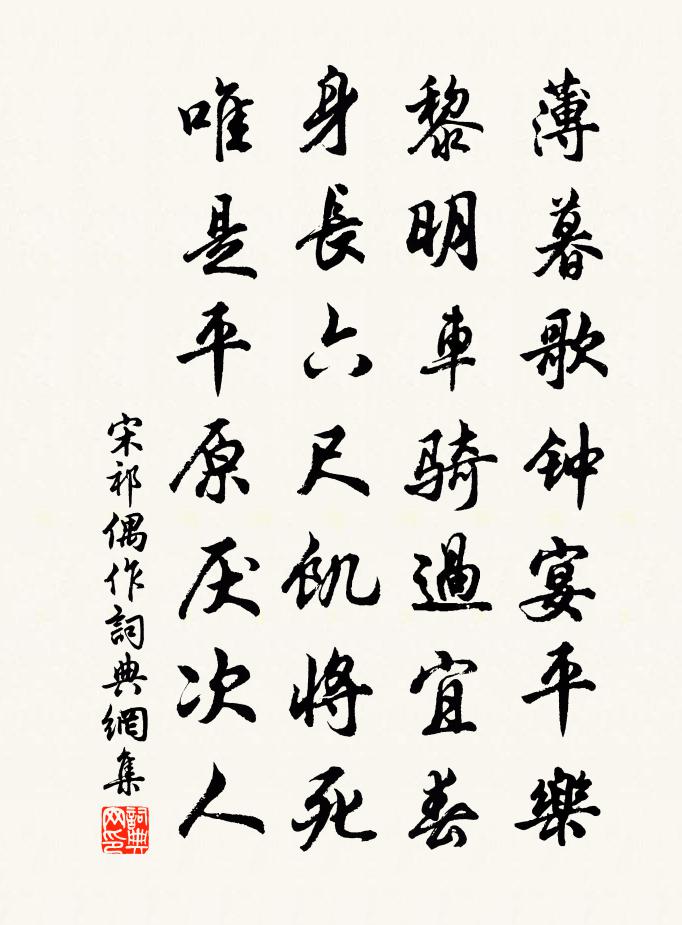 薄暮歌钟宴平樂
黎明車骑過宜春
身長六尺飢將死
唯是平原厌次人
宋祁偶作詞典網集
詞典网印